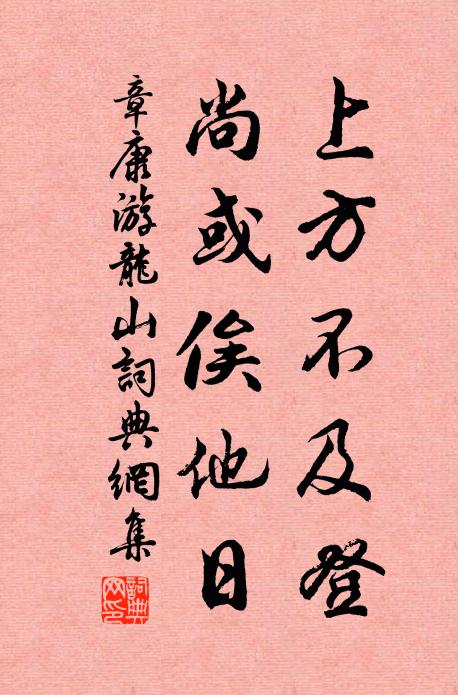 上方不及登
尚或俟他日
章康游龍山詞典網集
詞典網印